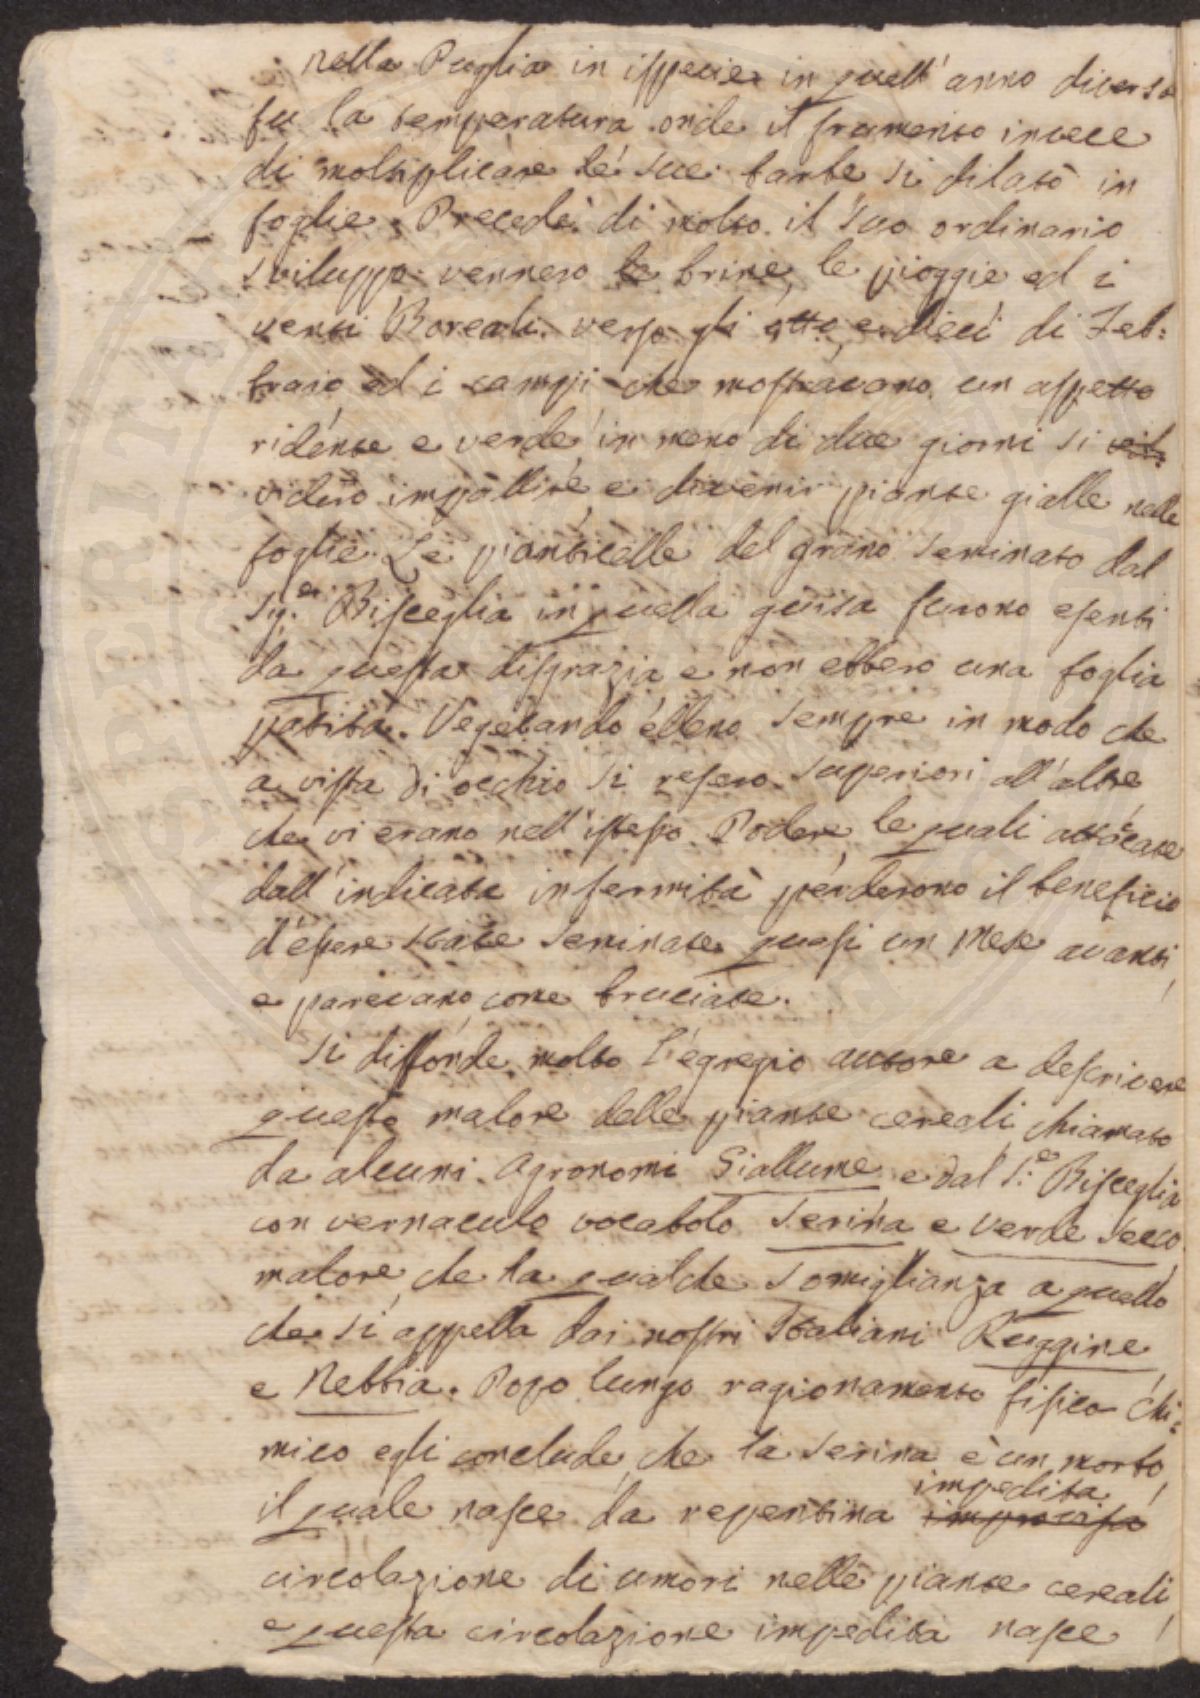 Nella Puglia in ispecie in quell'anno diversa
fu la temperatura onde il frumento invece
di moltiplicare le sue barbe si dilatò in
foglie. Precedè di molto il suo ordinario
sviluppo vennero le brine, le pioggie ed i
venti Boreali verso gli otto, e dieci di Feb:
braio ed i campi che mostravano un aspetto
ridente e verde, in meno di due giorni si
videro impallire, e divenir piante gialle nelle
foglie. Le pianticelle del grano seminato dal
Sig.r Bisceglia in quella guisa furono esenti
da questa disgrazia e non ebbero una foglia
patita. Vegetando elleno sempre in modo che
a vista di occhio si resero superiori all'altre
che vi erano nell'istesso Podere, le quali attaccate
dall'indicata infermità perderono il beneficio
d'essere state seminate quasi un mese avanti,
e parevano come bruciate.
Si diffonde molto l'egregio autore a descrivere
questo malore delle piante cereali, chiamato
da alcuni Agronomi Giallume e dal S.r Bisceglia
con vernaculo vocabolo Serina e verde secco
malore, che ha qualche somiglianza a quello
che si appella dai nostri Italiani Ruggine,
e Nebbia. Dopo lungo ragionamento fisico chi:
mico egli conclude, che la serina è un morbo,
impedita
il quale nasce da repentina improvisa
circolazione di umori nelle piante cereali,
e questa circolazione impedita nasce